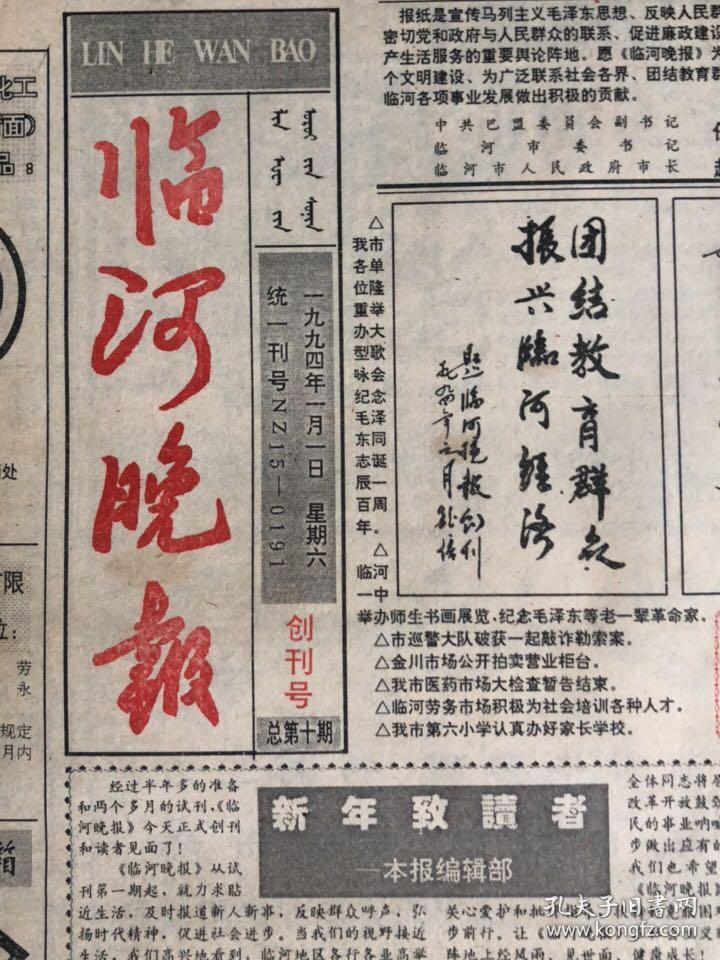 LIN HE WAN BAO
临河晚报
一九九四年一月一日 星期六
统一刊号NZ15—0191
创刊号
总第十期
化工
面）
品 8
处
限
位：
劳
永
规定
月内
报纸是宣传马列主义毛泽东思想、反映人民群
密切党和政府与人民群众的联系、促进廉政建设
产生活服务的重要舆论阵地。愿《临河晚报》为
个文明建设、为广泛联系社会各界、团结教育群
临河各项事业发展做出积极的贡献。
中共巴盟委员会副书记
临河市委书记
临河市人民政府市长
团结教育群众
振兴临河经济
题临河晚报创刊
△市单隆举大歌会念泽同诞一周。
我各位重办型咏纪毛东志辰百年。
△河中
临一
举办师生书画展览，纪念毛泽东等老一辈革命家。
△市巡警大队破获一起敲诈勒索案。
△金川市场公开拍卖营业柜台。
△我市医药市场大检查暂告结束。
△临河劳务市场积极为社会培训各种人才。
△我市第六小学认真办好家长学校。
新年致讀者
—本报编辑部
经过半年多的准备
和两个多月的试刊，《临
河晚报》今天正式创刊
和读者见面了！
《临河晚报》从试
刊第一期起，就力求贴
近生活，及时报道新人新事，反映群众呼声，弘
扬时代精神，促进社会进步。当我们的视野接近
生活，我们高兴地看到，临河地区各行各业高举
全体同志将尽
改革开放鼓劲
民的事业呐喊
步做出应有的
我们也希望
《临河晚报》
关心爱护和批
步前行。让《
阵地上经风雨、见世面、健康成长！
孔夫子旧书网
www.kongfz.com